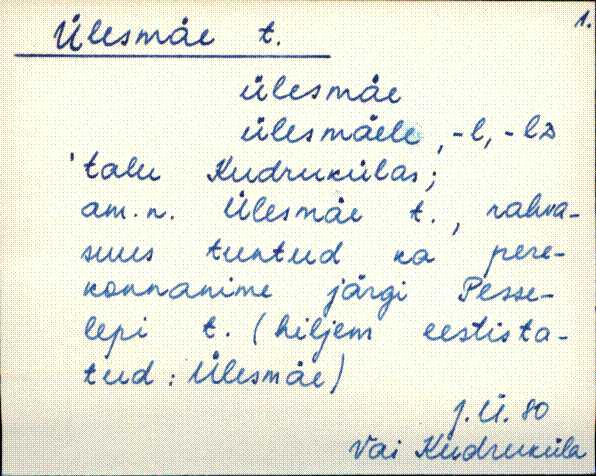 1.
Ülesmäe t.
ülesmäe
ülesmäele, -l, -lə
'talu Kudrukülas;
am. n. Ülesmäe t., rahva-
suus tuntud ka pere-
konnanime järgi Pesse-
lepi t. (hiljem eestista-
tud: Ülesmäe)
J. Ü. 80
Vai Kudruküla